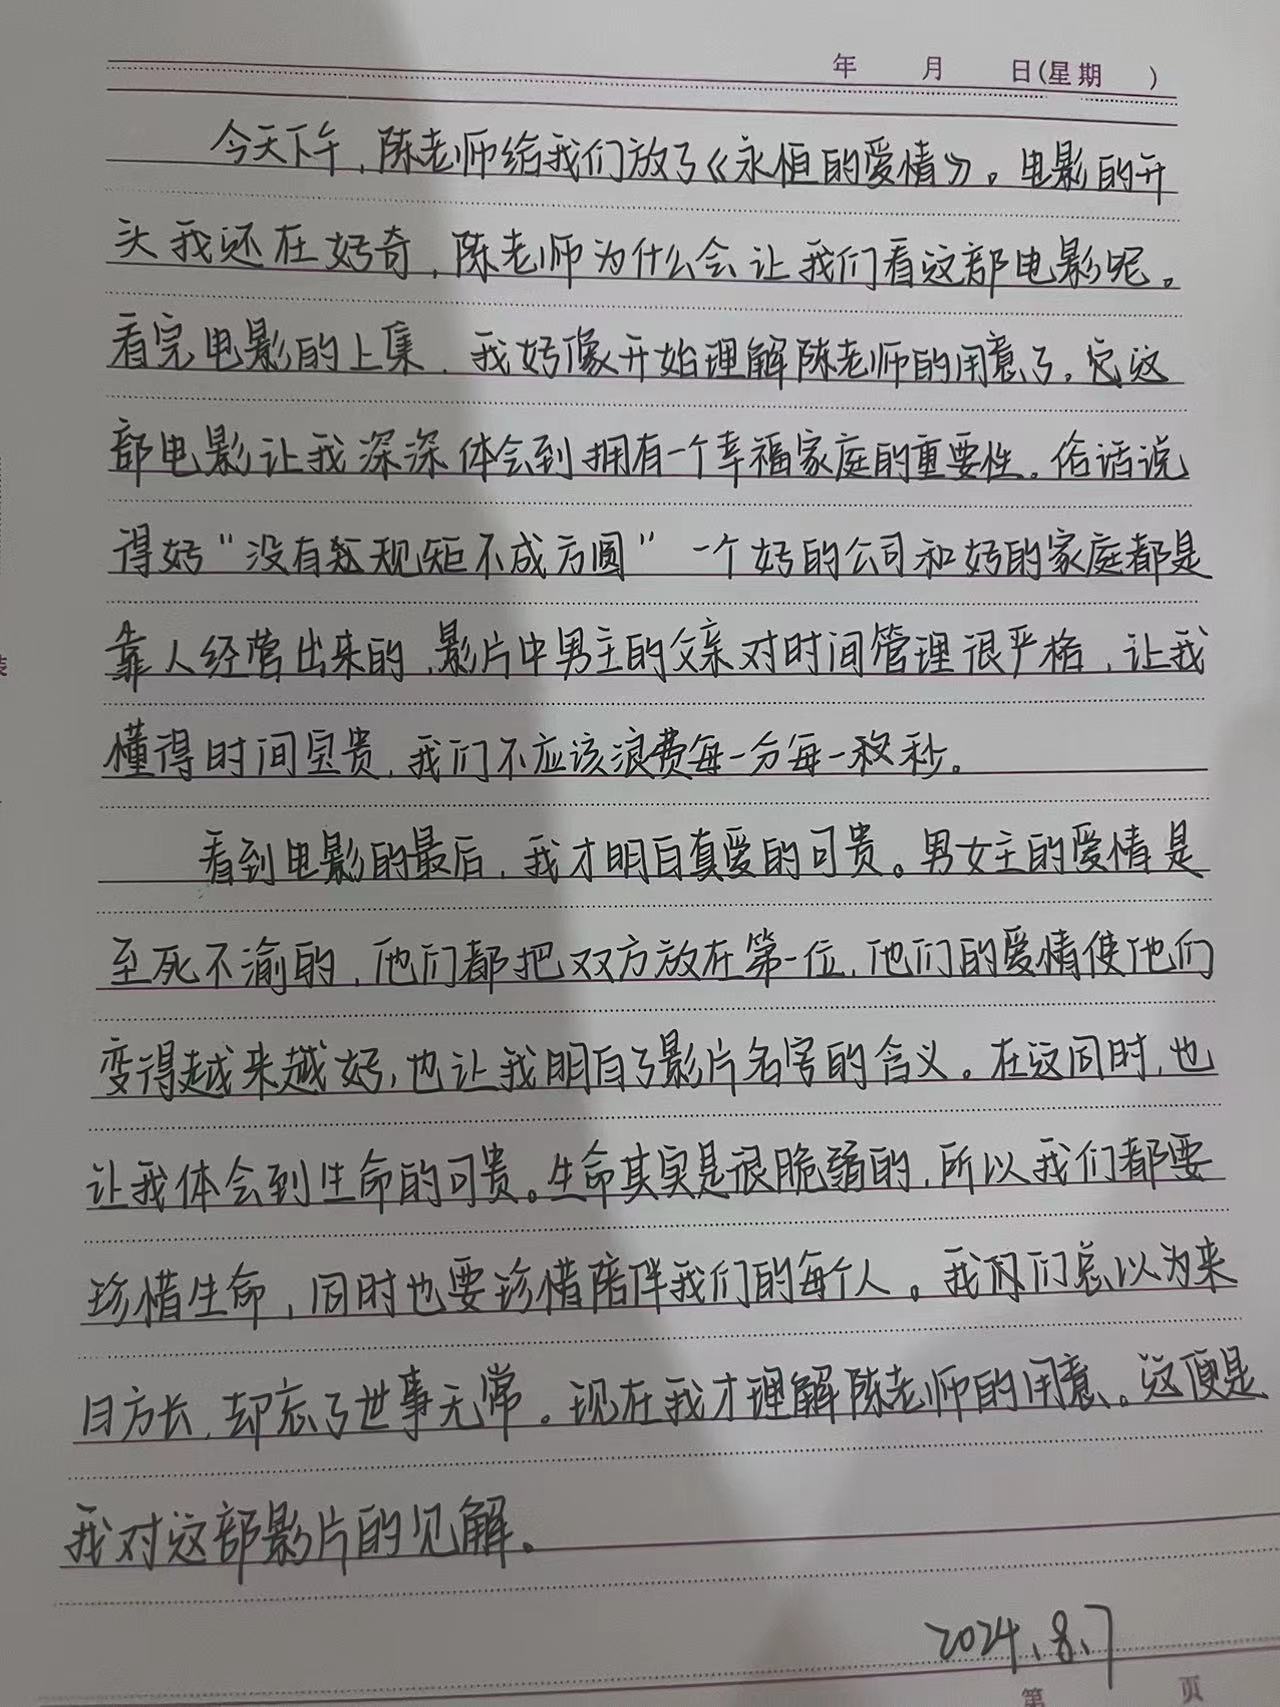 年 月 日(星期 )
今天下午，陈老师给我们放了《永恒的爱情》。电影的开
头我还在好奇，陈老师为什么会让我们看这部电影呢。
看完电影的上集，我好像开始理解陈老师的用意了，这
部电影让我深深体会到拥有一个幸福家庭的重要性。俗话说
得好"没有规矩不成方圆"一个好的公司和好的家庭都是
靠人经营出来的，影片中男主的父亲对时间管理很严格，让我
懂得时间宝贵，我们不应该浪费每一分每一秒。
看到电影的最后，我才明白真爱的可贵。男女主的爱情是
至死不渝的，他们都把双方放在第一位，他们的爱情使他们
变得越来越好，也让我明白了影片名字的含义。在这同时，也
让我体会到生命的可贵。生命其实是很脆弱的，所以我们都要
珍惜生命，同时也要珍惜陪伴我们的每个人。我们总以为来
日方长，却忘了世事无常。现在我才理解陈老师的用意。这便是
我对这部影片的见解。
2024.8.7
第 页